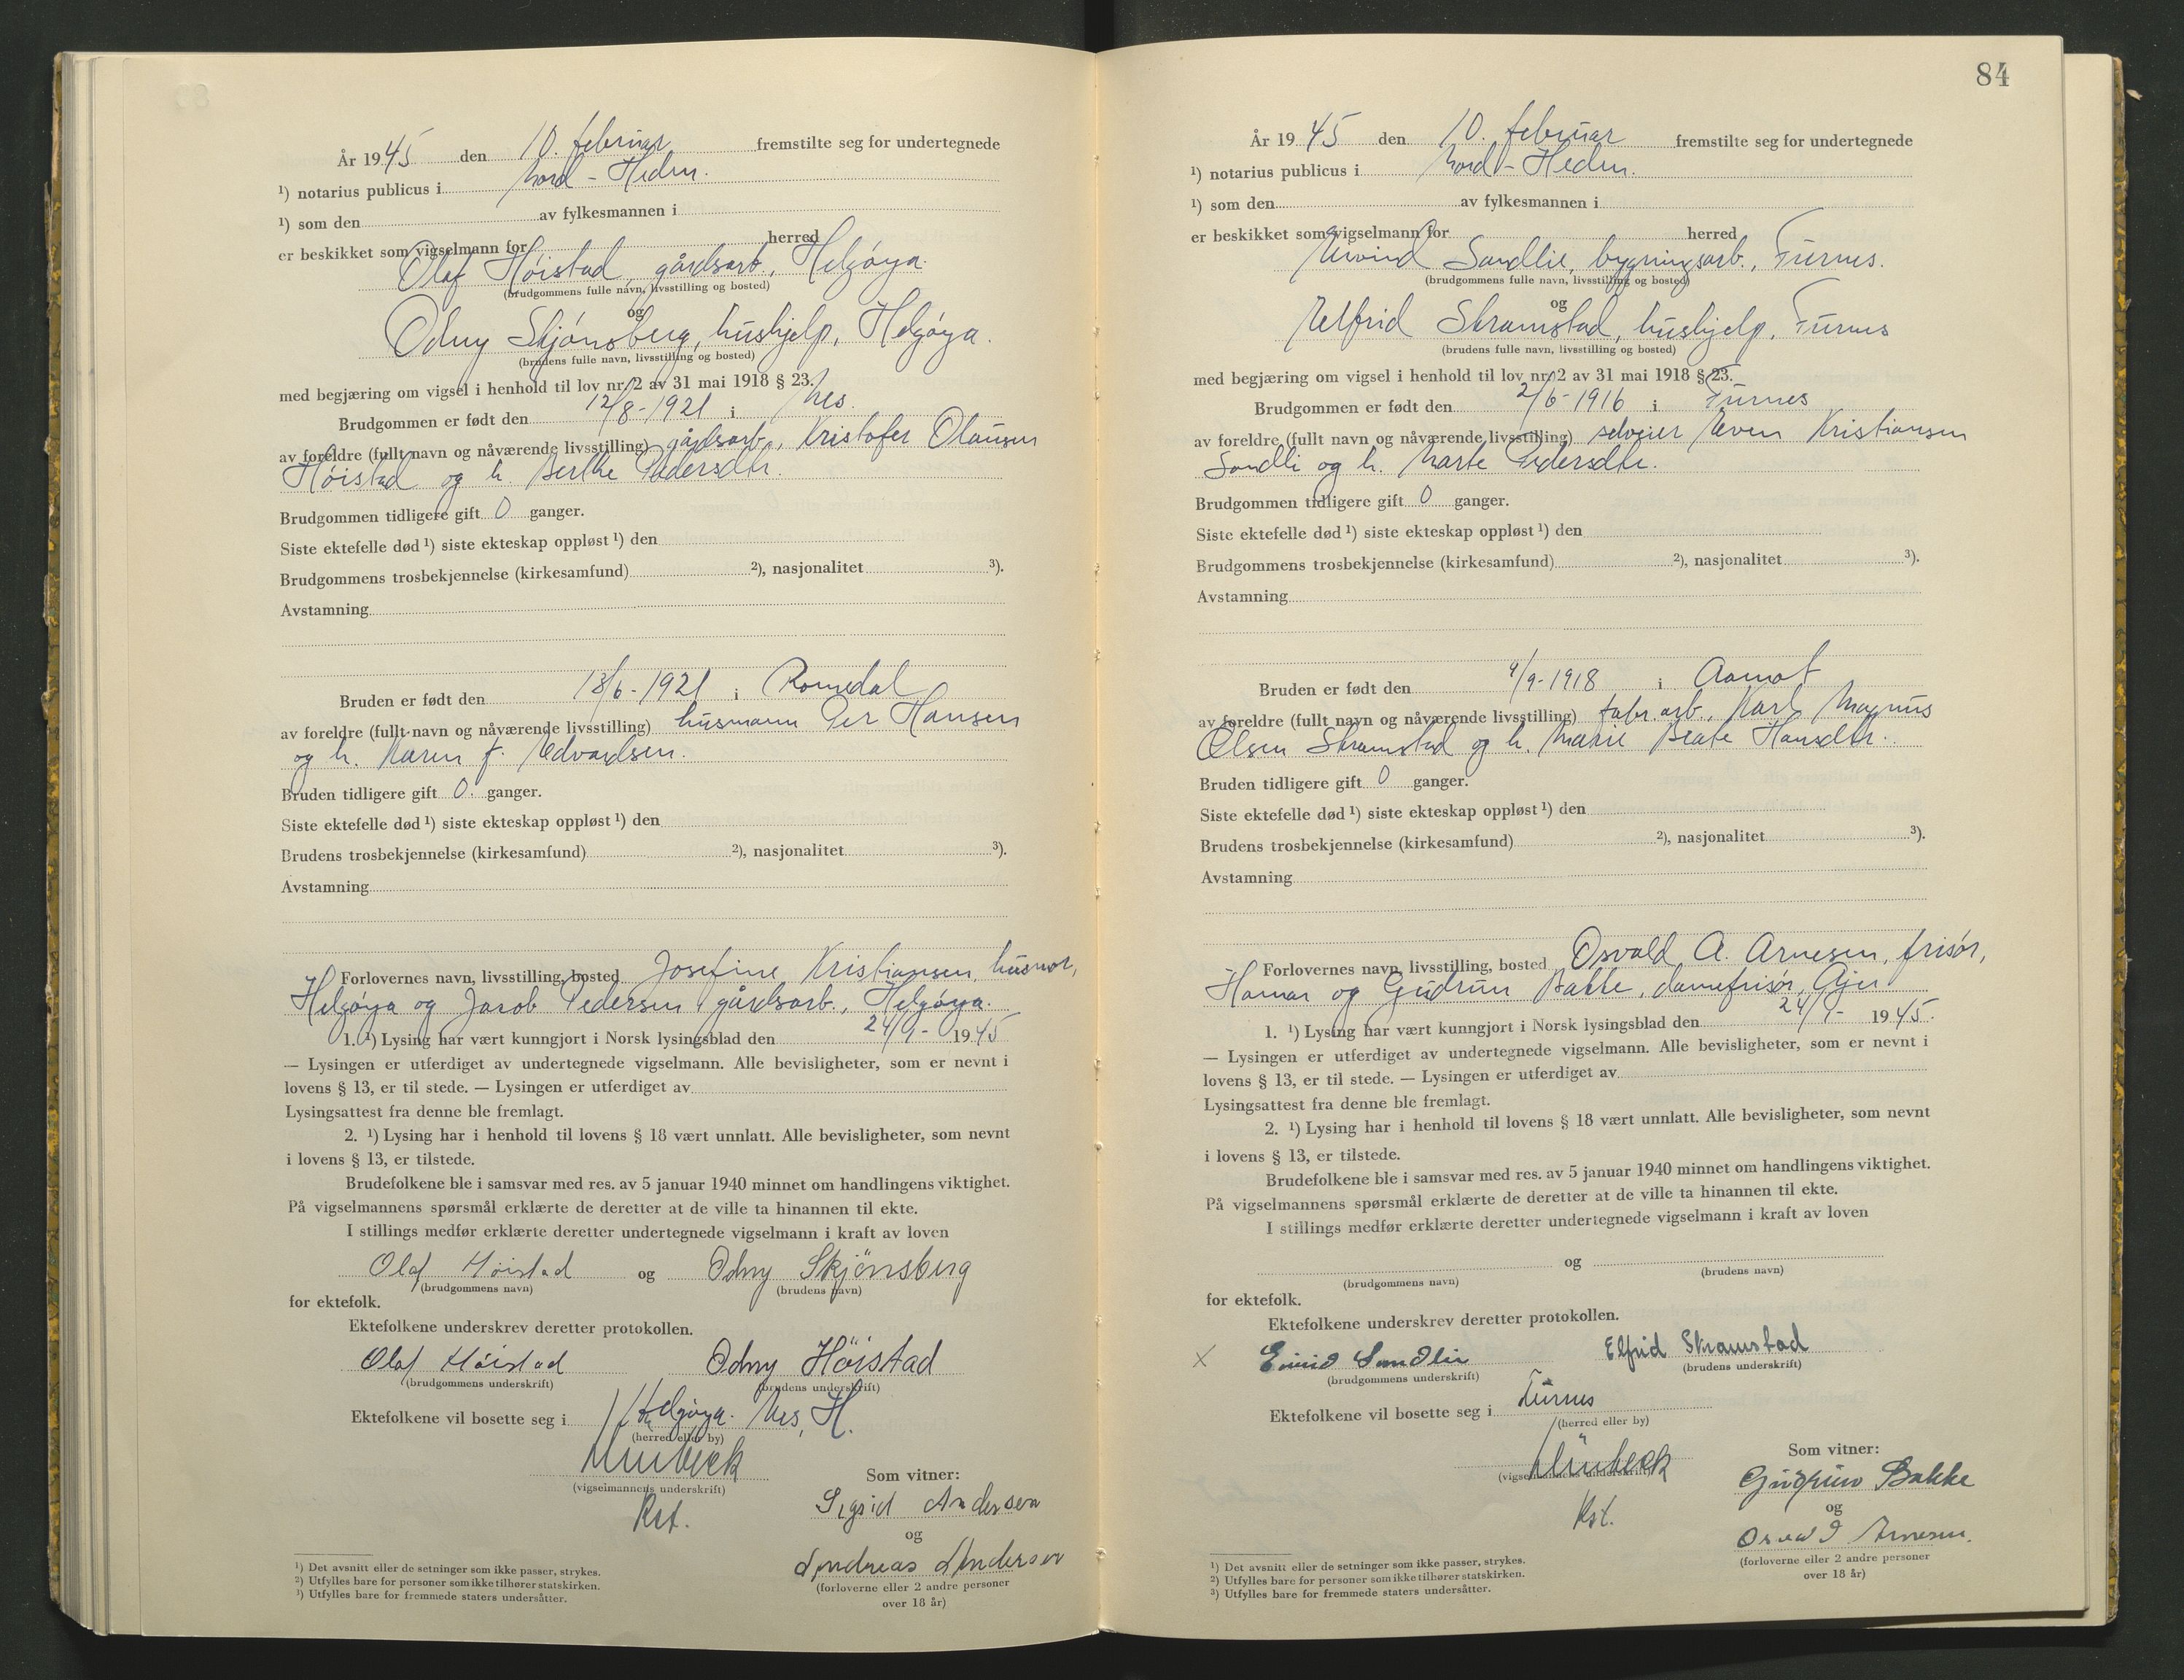 År 1945 den 10. februar fremstilte seg for undertegnede
¹) notarius publicus i Nord-Hedm.
¹) som den av fylkesmannen i
er beskikket som vigselmann for herred
Olaf Höistad, gårdsarb., Helgöya.
(brudgommens fulle navn, livsstilling og bosted)
og
Odny Skjönsberg, hushjelp, Helgöya.
(brudens fulle navn, livsstilling og bosted)
med begjæring om vigsel i henhold til lov nr. 2 av 31 mai 1918 § 23.
Brudgommen er født den 12/8-1921 i Nes.
av foreldre (fullt navn og nåværende livsstilling) gårdsarb. Kristofer Olausen
Höistad og h. Berthe Pedersdtr.
Brudgommen tidligere gift 0 ganger.
Siste ektefelle død ¹) siste ekteskap oppløst ¹) den
Brudgommens trosbekjennelse (kirkesamfund) ²), nasjonalitet ³).
Avstamning
Bruden er født den 18/6-1921 i Romedal
av foreldre (fullt navn og nåværende livsstilling) husmann Per Hansen
og h. Karen f. Edvardsen.
Bruden tidligere gift 0. ganger.
Siste ektefelle død ¹) siste ekteskap oppløst ¹) den
Brudens trosbekjennelse (kirkesamfund) ²), nasjonalitet ³).
Avstamning
Forlovernes navn, livsstilling, bosted Josefine Kristiansen, husmor,
Helgöya og Jacob Pedersen, gårdsarb., Helgöya.
1. ¹) Lysing har vært kunngjort i Norsk lysingsblad den 24/1- 1945
— Lysingen er utferdiget av undertegnede vigselmann. Alle bevisligheter, som er nevnt i
lovens § 13, er til stede. — Lysingen er utferdiget av
Lysingsattest fra denne ble fremlagt.
2. ¹) Lysing har i henhold til lovens § 18 vært unnlatt. Alle bevisligheter, som nevnt
i lovens § 13, er tilstede.
Brudefolkene ble i samsvar med res. av 5 januar 1940 minnet om handlingens viktighet.
På vigselmannens spørsmål erklærte de deretter at de ville ta hinannen til ekte.
I stillings medfør erklærte deretter undertegnede vigselmann i kraft av loven
Olaf Höistad og Odny Skjönsberg
(brudgommens navn) (brudens navn)
for ektefolk.
Ektefolkene underskrev deretter protokollen.
Olaf Höistad Odny Höistad
(brudgommens underskrift) (brudens underskrift)
Ektefolkene vil bosette seg i Helgöya. Nes, H.
(herred eller by)
(vigselmannens underskrift)
Som vitner:
Sigrid Andersen
og
Andreas Andersen
(forloverne eller 2 andre personer
over 18 år)
¹) Det avsnitt eller de setninger som ikke passer, strykes.
²) Utfylles bare for personer som ikke tilhører statskirken.
³) Utfylles bare for fremmede staters undersåtter.
84
År 1945 den 10. februar fremstilte seg for undertegnede
¹) notarius publicus i Nord-Hedm.
¹) som den av fylkesmannen i
er beskikket som vigselmann for herred
Eivind Sandlie, bygningsarb., Furnes.
(brudgommens fulle navn, livsstilling og bosted)
og
Elfrid Stramstad, hushjelp, Furnes
(brudens fulle navn, livsstilling og bosted)
med begjæring om vigsel i henhold til lov nr. 2 av 31 mai 1918 § 23.
Brudgommen er født den 2/6-1916 i Furnes
av foreldre (fullt navn og nåværende livsstilling) selveier Even Kristiansen
Sandli og h. Marte Pedersdtr.
Brudgommen tidligere gift 0 ganger.
Siste ektefelle død ¹) siste ekteskap oppløst ¹) den
Brudgommens trosbekjennelse (kirkesamfund) ²), nasjonalitet ³).
Avstamning
Bruden er født den 9/9-1918 i Aamot
av foreldre (fullt navn og nåværende livsstilling) fabr.arb., Karl Magnus
Olsen Stramstad og h. Marie Beate Hansdtr.
Bruden tidligere gift 0 ganger.
Siste ektefelle død ¹) siste ekteskap oppløst ¹) den
Brudens trosbekjennelse (kirkesamfund) ²), nasjonalitet ³).
Avstamning
Forlovernes navn, livsstilling, bosted Osvald A. Arnesen, frisör,
Hamar og Gudrun Bakke, damefrisör,
1. ¹) Lysing har vært kunngjort i Norsk lysingsblad den 24/1- 1945.
— Lysingen er utferdiget av undertegnede vigselmann. Alle bevisligheter, som er nevnt i
lovens § 13, er til stede. — Lysingen er utferdiget av
Lysingsattest fra denne ble fremlagt.
2. ¹) Lysing har i henhold til lovens § 18 vært unnlatt. Alle bevisligheter, som nevnt
i lovens § 13, er tilstede.
Brudefolkene ble i samsvar med res. av 5 januar 1940 minnet om handlingens viktighet.
På vigselmannens spørsmål erklærte de deretter at de ville ta hinannen til ekte.
I stillings medfør erklærte deretter undertegnede vigselmann i kraft av loven
og
(brudgommens navn) (brudens navn)
for ektefolk.
Ektefolkene underskrev deretter protokollen.
x Eivind Sandlie Elfrid Stramstad
(brudgommens underskrift) (brudens underskrift)
Ektefolkene vil bosette seg i Furnes
(herred eller by)
Som vitner:
Gudrun Bakke
og
Osvald Arnesen.
(forloverne eller 2 andre personer
over 18 år)
¹) Det avsnitt eller de setninger som ikke passer, strykes.
²) Utfylles bare for personer som ikke tilhører statskirken.
³) Utfylles bare for fremmede staters undersåtter.